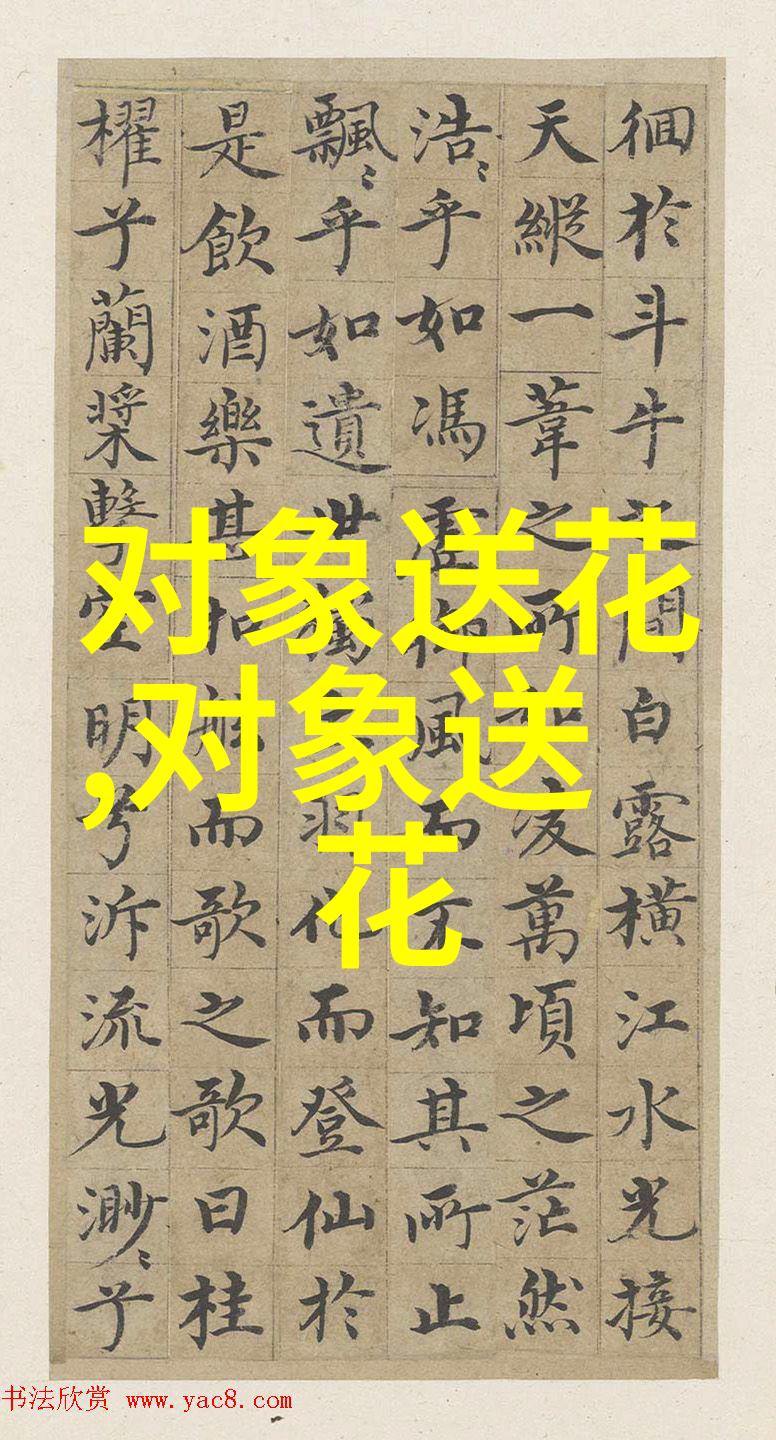 徊於斗牛之間白露橫江水光接
天縱一葦之所如凌萬頃之茫然
浩〻乎如馮虛御風而不知其所止
飄〻乎如遺世獨立羽化而登仙於
是飲酒樂甚扣舷而歌之歌曰桂
櫂兮蘭槳擊空明兮泝流光渺〻兮
对象送花
,对象送
花
书法欣赏 www.yac8.com